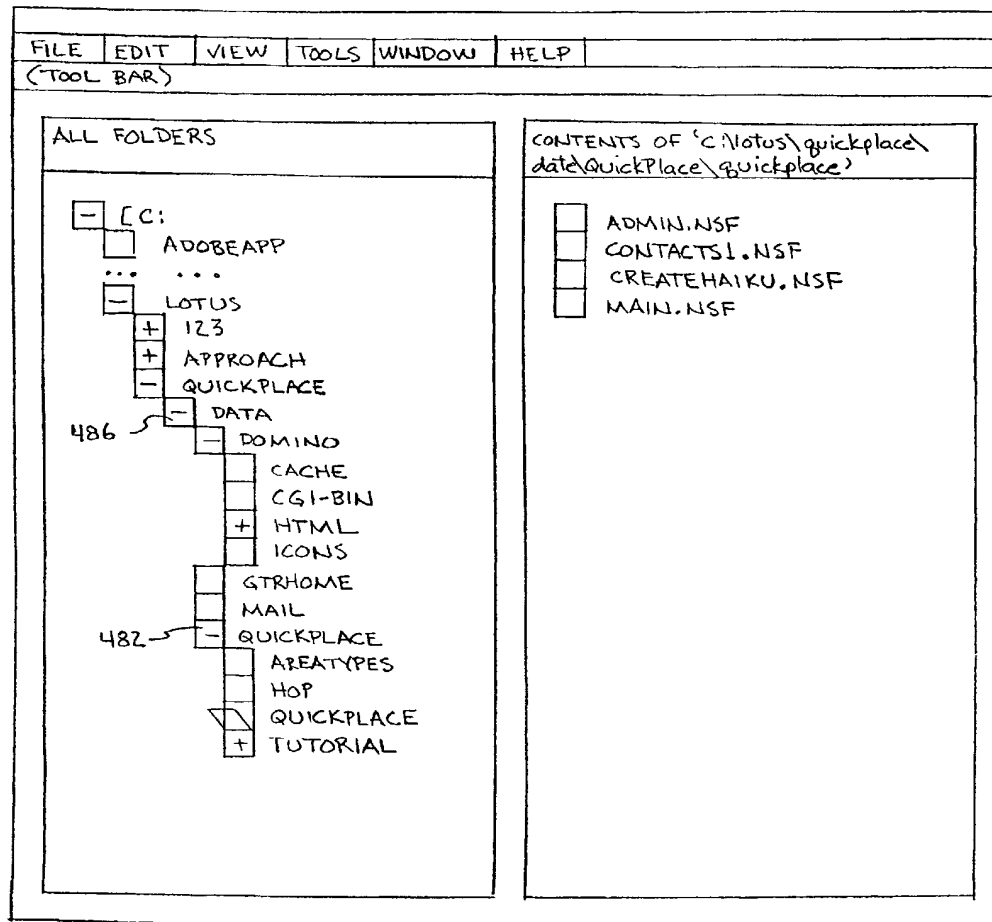 FILE EDIT VIEW TOOLS WINDOW HELP
(TOOL BAR)
ALL FOLDERS
- [C:
ADOBEAPP
... ...
- LOTUS
+ 123
+ APPROACH
- QUICKPLACE
- DATA
486
- DOMINO
CACHE
CGI-BIN
+ HTML
ICONS
GTRHOME
MAIL
482 - QUICKPLACE
AREATYPES
HOP
QUICKPLACE
+ TUTORIAL
CONTENTS OF 'C:\lotus\quickplace\
date\QuickPlace\quickplace'
ADMIN.NSF
CONTACTS1.NSF
CREATEHAIKU.NSF
MAIN.NSF